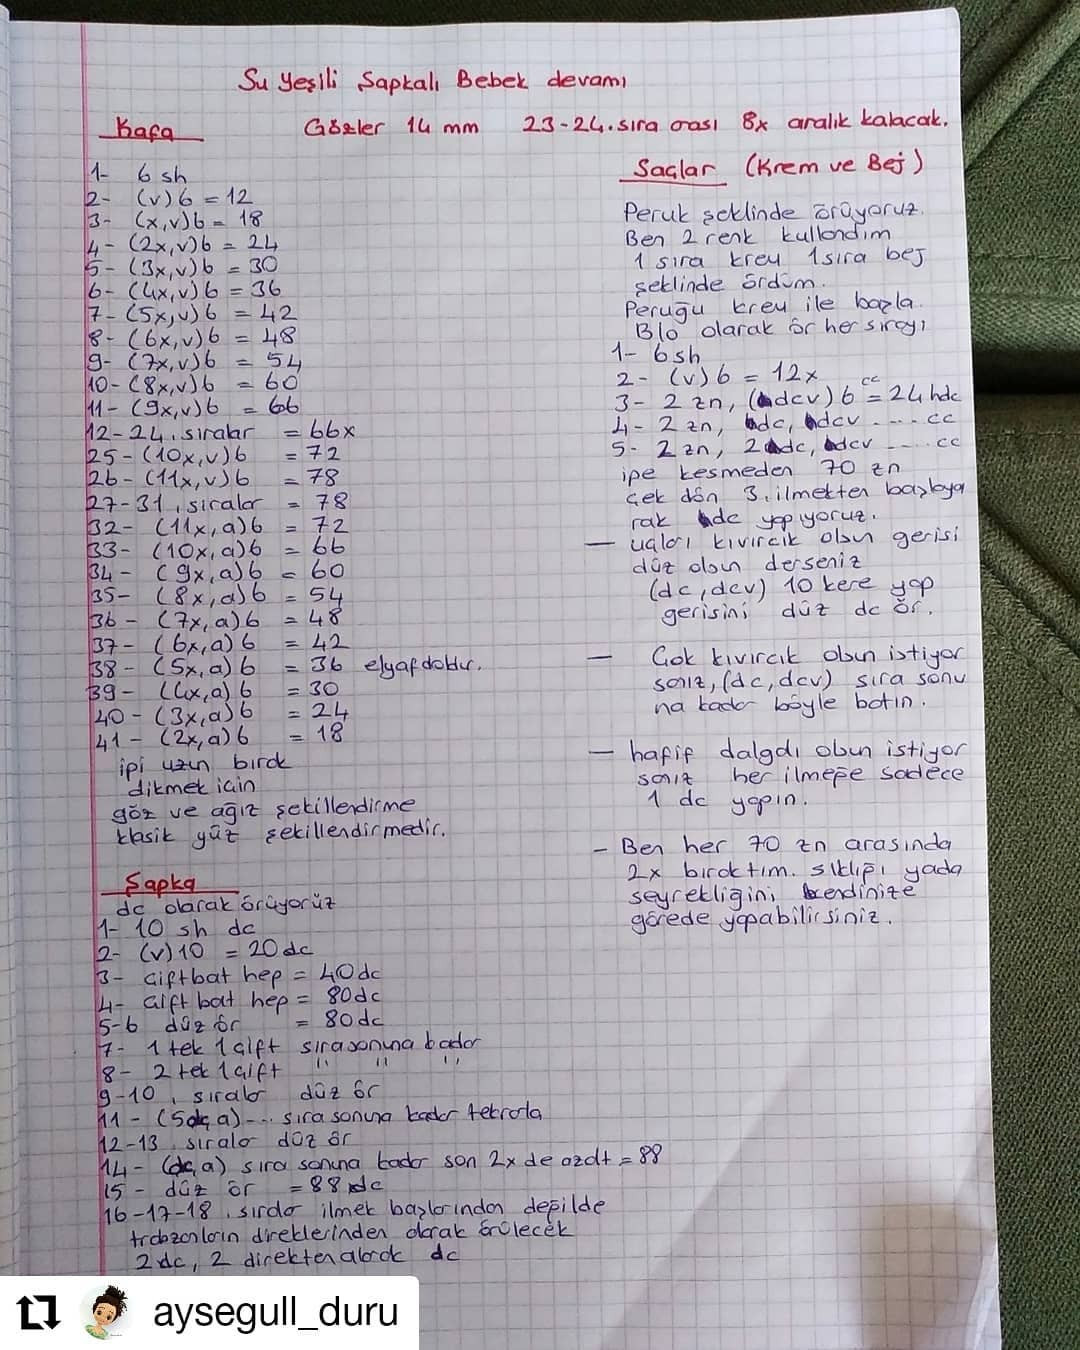 Su Yeşili Şapkalı Bebek devamı
Kafa
Gözler 14 mm 23-24.sıra arası 8x aralık kalacak.
1- 6 sh
2- (v)6 = 12
3- (x,v)6 = 18
4- (2x,v)6 = 24
5- (3x,v)6 = 30
6- (4x,v)6 = 36
7- (5x,v)6 = 42
8- (6x,v)6 = 48
9- (7x,v)6 = 54
10- (8x,v)6 = 60
11- (9x,v)6 = 66
12-24. sıralar = 66x
25- (10x,v)6 = 72
26- (11x,v)6 = 78
27-31. sıralar = 78
32- (11x,a)6 = 72
33- (10x,a)6 = 66
34- (9x,a)6 = 60
35- (8x,a)6 = 54
36- (7x,a)6 = 48
37- (6x,a)6 = 42
38- (5x,a)6 = 36 elyaf doldur.
39- (4x,a)6 = 30
40- (3x,a)6 = 24
41- (2x,a)6 = 18
ipi uzun bırak
dikmek için
göz ve ağız şekillendirme
klasik yüz şekillendirmedir.
Şapka
dc olarak örüyoruz
1- 10 sh dc
2- (v)10 = 20dc
3- çift bat hep = 40dc
4- çift bat hep = 80dc
5-6 düz ör = 80dc
7- 1 tek 1 çift sıra sonuna kadar
8- 2 tek 1 çift " " "
9-10. sıralar düz ör
11- (5dc,a)... sıra sonuna kadar tekrarla
12-13. sıralar düz ör
14- (dc,a) sıra sonuna kadar son 2x de azalt = 88
15- düz ör = 88 dc
16-17-18. sırdar ilmek başlarından değilde
trabzanların direklerinden olarak örülecek
2dc, 2 direkten alarak dc
Saçlar (Krem ve Bej)
Peruk şeklinde örüyoruz.
Ben 2 renk kullandım
1 sıra krem 1 sıra bej
şeklinde ördüm.
Peruğu krem ile başla.
Blo olarak ör her sırayı
1- 6sh
2- (v)6 = 12x
3- 2 zn, (hdcv)6 cc = 24 hdc
4- 2 zn, hdc, hdcv .... cc
5- 2 zn, 2hdc, hdcv .... cc
ipe kesmeden 70 zn
çek dön 3. ilmekten başlaya
rak hdc yapıyoruz.
— uçları kıvırcık olsun gerisi
düz olsun derseniz
(dc, dcv) 10 kere yap
gerisini düz dc ör.
— Çok kıvırcık olsun istiyor
sanız, (dc, dcv) sıra sonu
na kadar böyle batın.
— hafif dalgalı olsun istiyor
sanız her ilmeğe sadece
1 dc yapın.
- Ben her 70 zn arasında
2x bıraktım. sıklığı yada
seyrekliğini kendinize
görede yapabilirsiniz.
aysegull_duru